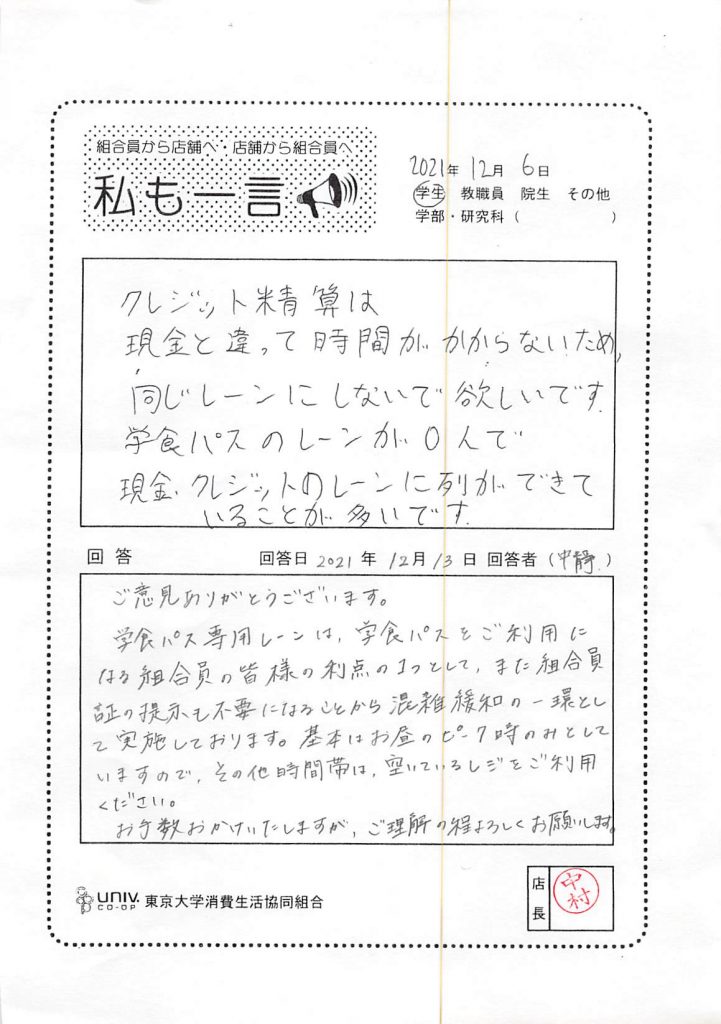 組合員から店舗へ・店舗から組合員へ
私も一言
2021年 12月 6日
学生 教職員 院生 その他
学部・研究科 ( )
クレジット精算は
現金と違って時間がかからないため、
同じレーンにしないで欲しいです。
学食パスのレーンが0人で
現金・クレジットのレーンに列ができて
いることが多いです。
回答 回答日 2021年 12月13日 回答者 (中静)
ご意見ありがとうございます。
学食パス専用レーンは、学食パスをご利用に
なる組合員の皆様の利点の1つとして、また組合員
証の提示も不要になることから混雑緩和の一環とし
て実施しております。基本はお昼のピーク時のみとして
いますので、その他時間帯は、空いているレジをご利用
ください。
お手数おかけいたしますが、ご理解の程よろしくお願いします。
UNIV. CO-OP 東京大学消費生活協同組合
店長 中村